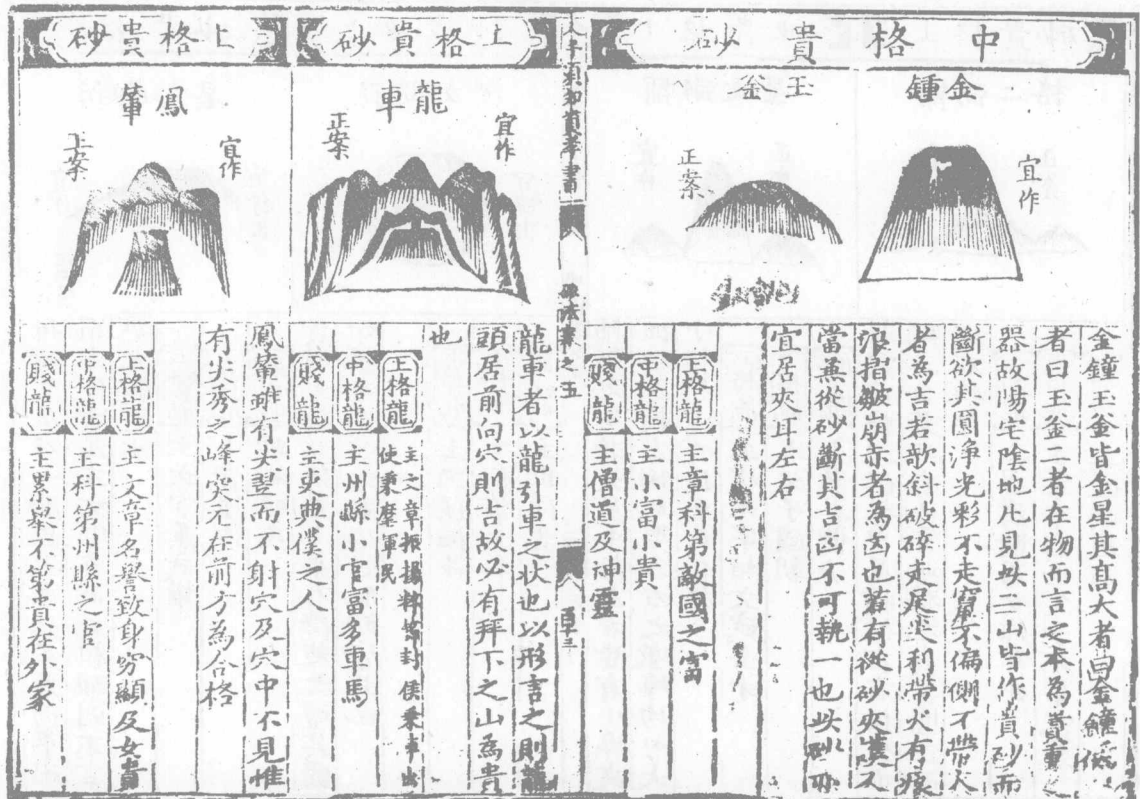 中格貴砂
金鍾
宜作
玉釜
正案
金鐘玉釜皆金星其高大者曰金鐘低
者曰玉釜二者在物而言之本為貴重之
器故陽宅陰地凡見此二山皆作貴砂而
斷欲其圓淨光彩不走竄不偏側不帶火
者為吉若欹斜破碎走尾尖利帶火有痕
浪摺皺崩赤者為凶也若有從砂夾
當兼從砂斷其吉凶不可執一也此砂
宜居夾耳左右
上格龍 主章科第敵國之富
中格龍 主小富小貴
賤龍 主僧道及神靈
人子須知資孝書
砂法卷之五
上格貴砂
龍車
宜作
正案
龍車者以龍引車之狀也以形言之則龍
頭居前向穴則吉故必有拜下之山為貴
也
上格龍 主文章振揚
封侯乘車出
使秉麾軍民
中格龍 主州縣小官富多車馬
賤龍 主吏典僕之人
上格貴砂
鳳輦
宜作
正案
鳳輦雖有尖翌而不射穴及穴中不見惟
有尖秀之峰突兀在前方為合格
上格龍 主文章名譽致身窮顯及女貴
中格龍 主科第州縣之官
賤龍 主累舉不第貴在外家